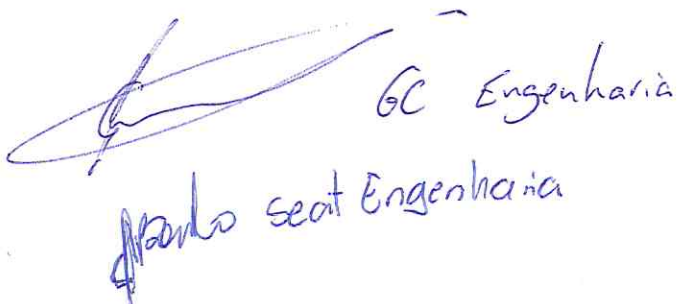 GC Engenharia
seat Engenharia